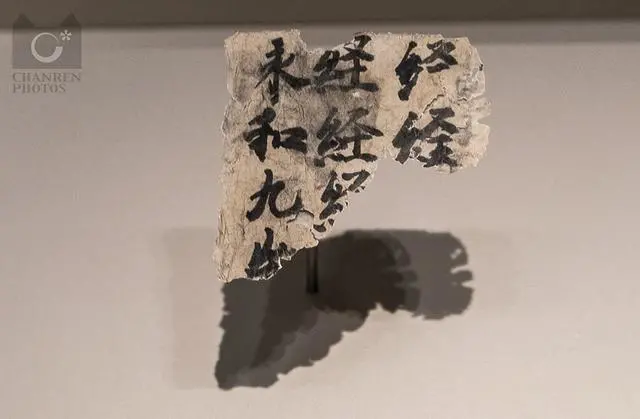 CHANREN
PHOTOS
经经
经经经
永和九